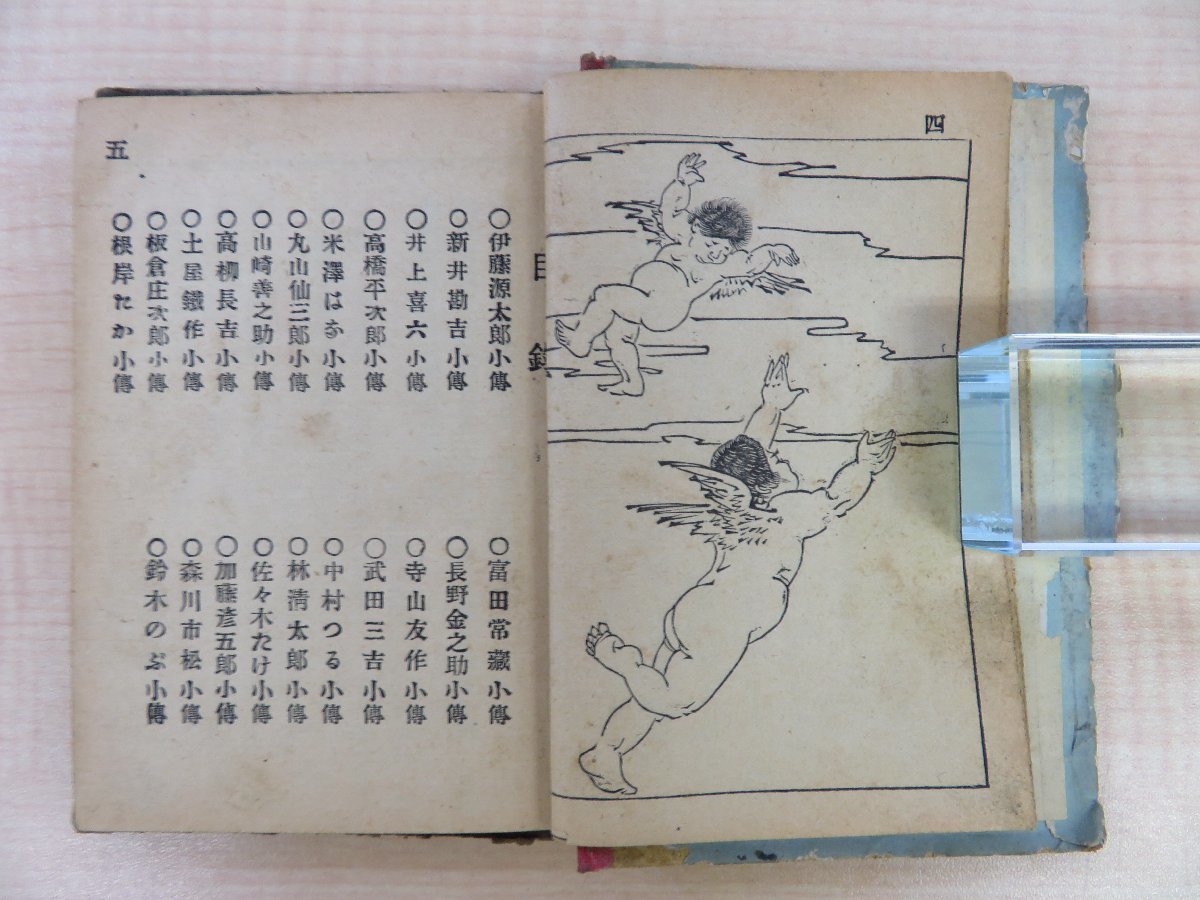 四
目錄
○伊藤源太郎小傳
○新井勘吉小傳
○井上喜六小傳
○高橋平次郎小傳
○米澤はな小傳
○丸山仙三郎小傳
○山崎善之助小傳
○高柳長吉小傳
○土屋鐵作小傳
○板倉庄次郎小傳
○根岸たか小傳
○富田常藏小傳
○長野金之助小傳
○寺山友作小傳
○武田三吉小傳
○中村つる小傳
○林淸太郎小傳
○佐々木たけ小傳
○加藤彥五郎小傳
○森川市松小傳
○鈴木のぶ小傳
五